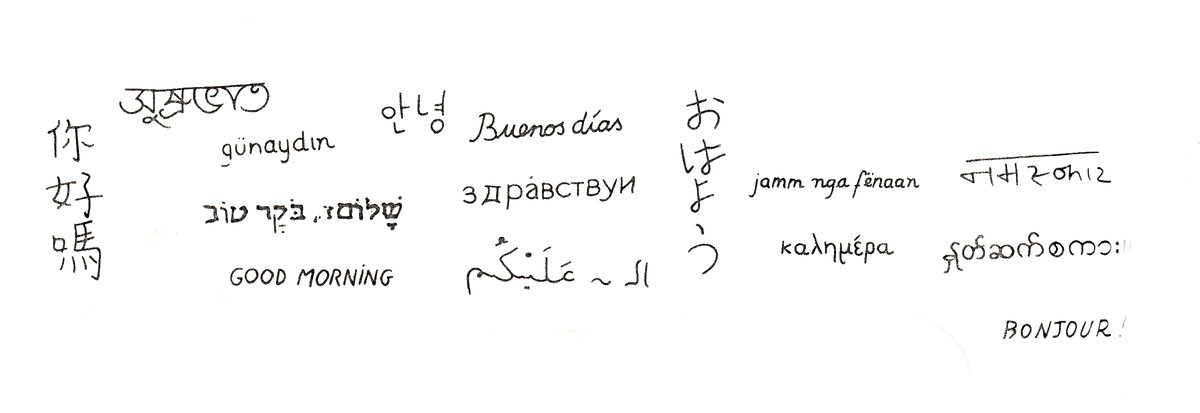 你好嗎
günaydın
안녕
Buenos días
おはよう
здра́вствуи
jamm nga fënaan
नमस्कार
בֹּקֶר טוֹב
καλημέρα
GOOD MORNING
عَلَيْكُم
BONJOUR !